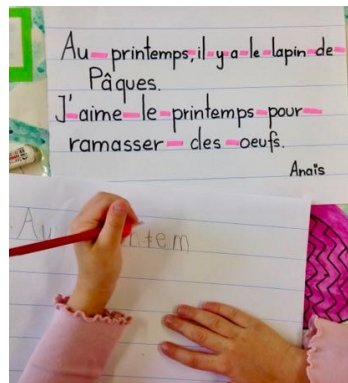 Au printemps, il y a le lapin de
Pâques.
J'aime le printemps pour
ramasser des oeufs.
Anaïs
Au tem